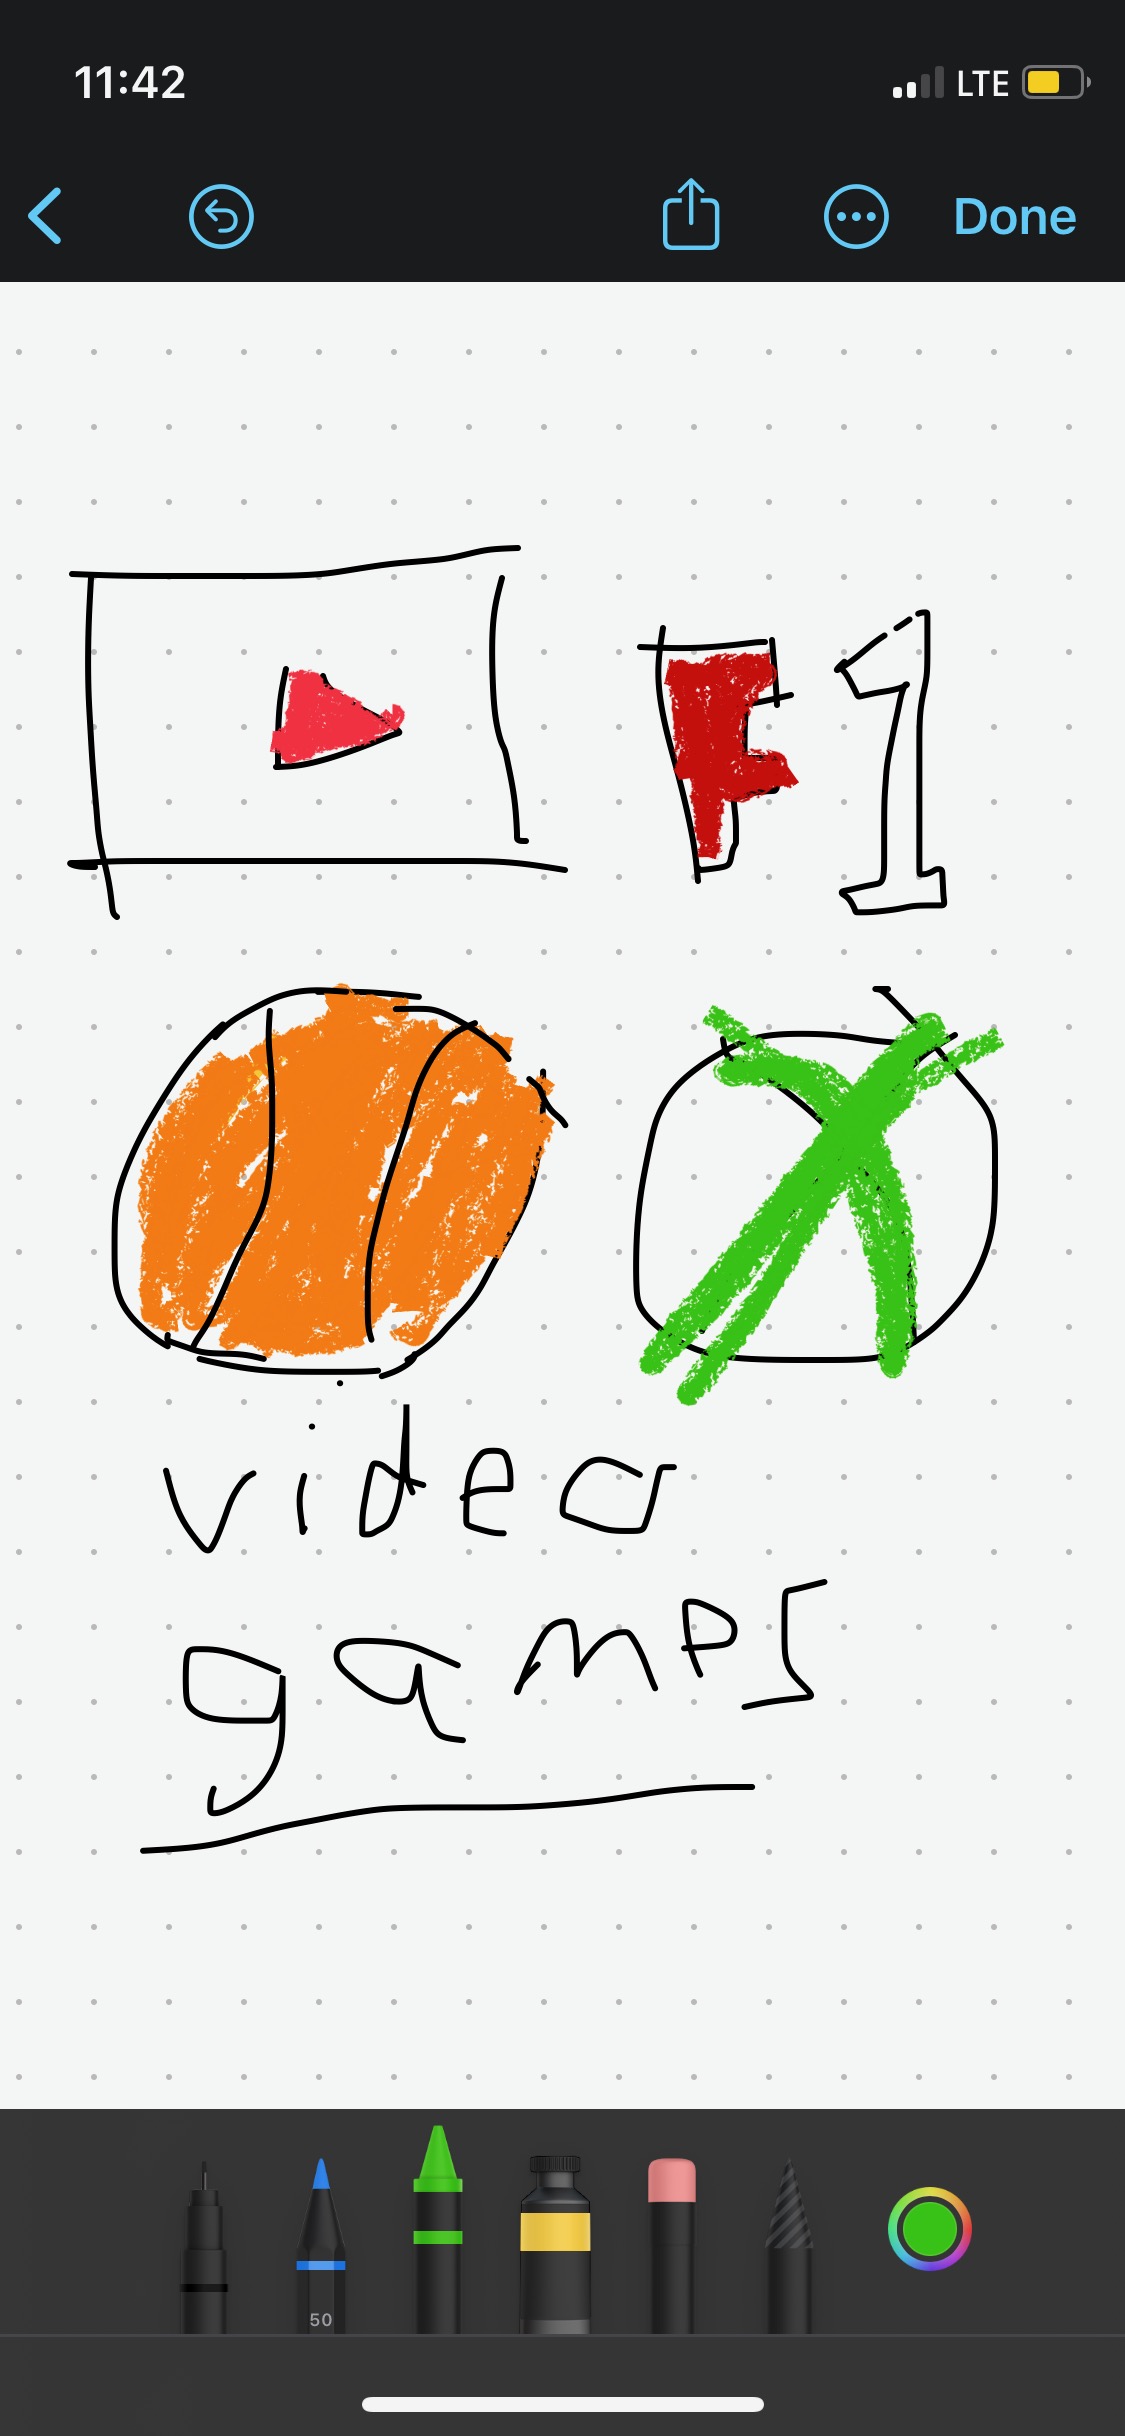 11:42 LTE
Done
F1
video
games
50